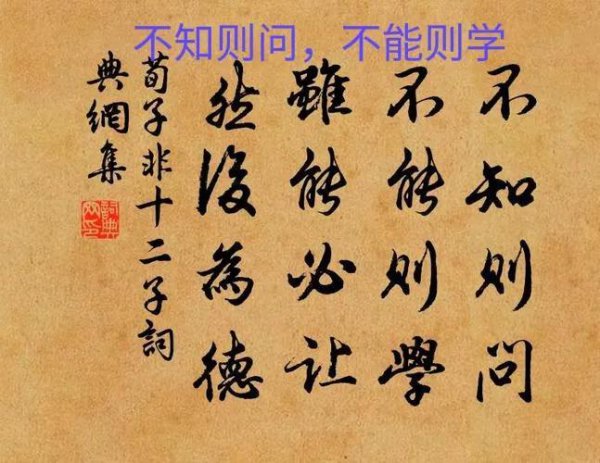 不知则问，不能则学
不知则问
不能则學
雖能必让
然後為德
荀子非十二子詞
典網集
詞典网印